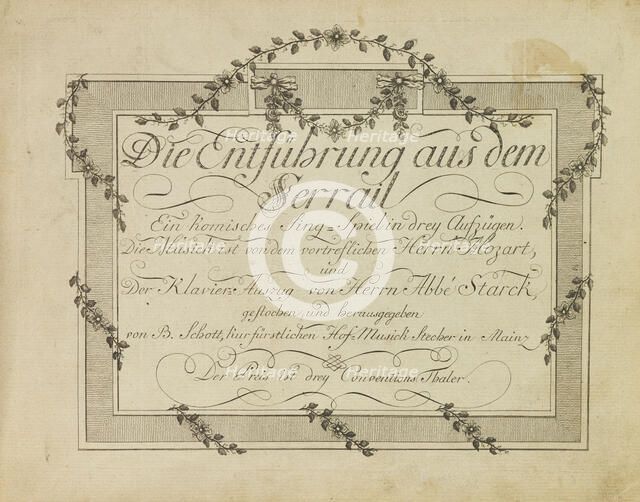 Die Entführung aus dem
Serrail
Ein komisches Sing=Spiel in drey Aufzügen.
Die Musick ist von dem vortreflichen Herrn Mozart,
und
Der Klavier=Auszug von Herrn Abbé Starck,
gestochen und herausgegeben
von B. Schott, kurfürstlichen Hof=Musick Stecher in Mainz
Der Preis ist drey Conventions Thaler.
Heritage
Heritage
Heritage
Heritage
Heritage
Heritage
Heritage
Heritage